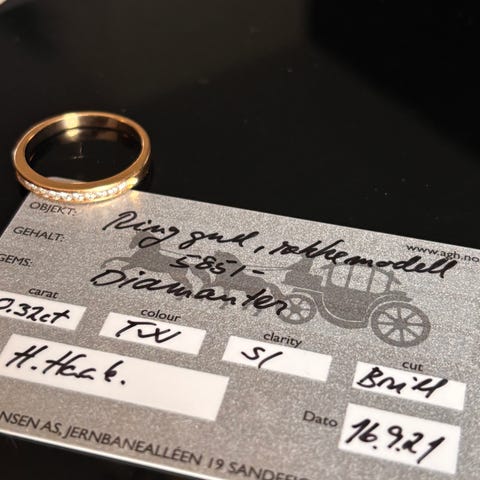 OBJEKT: Ring gul, rekkemodell
www.agh.no
GEHALT: 585/-
GEMS: Diamanter
carat colour clarity cut
0.32ct TW SI Brill
H. Haak.
Dato 16.9.21
NSEN AS, JERNBANEALLÉEN 19 SANDEFJ